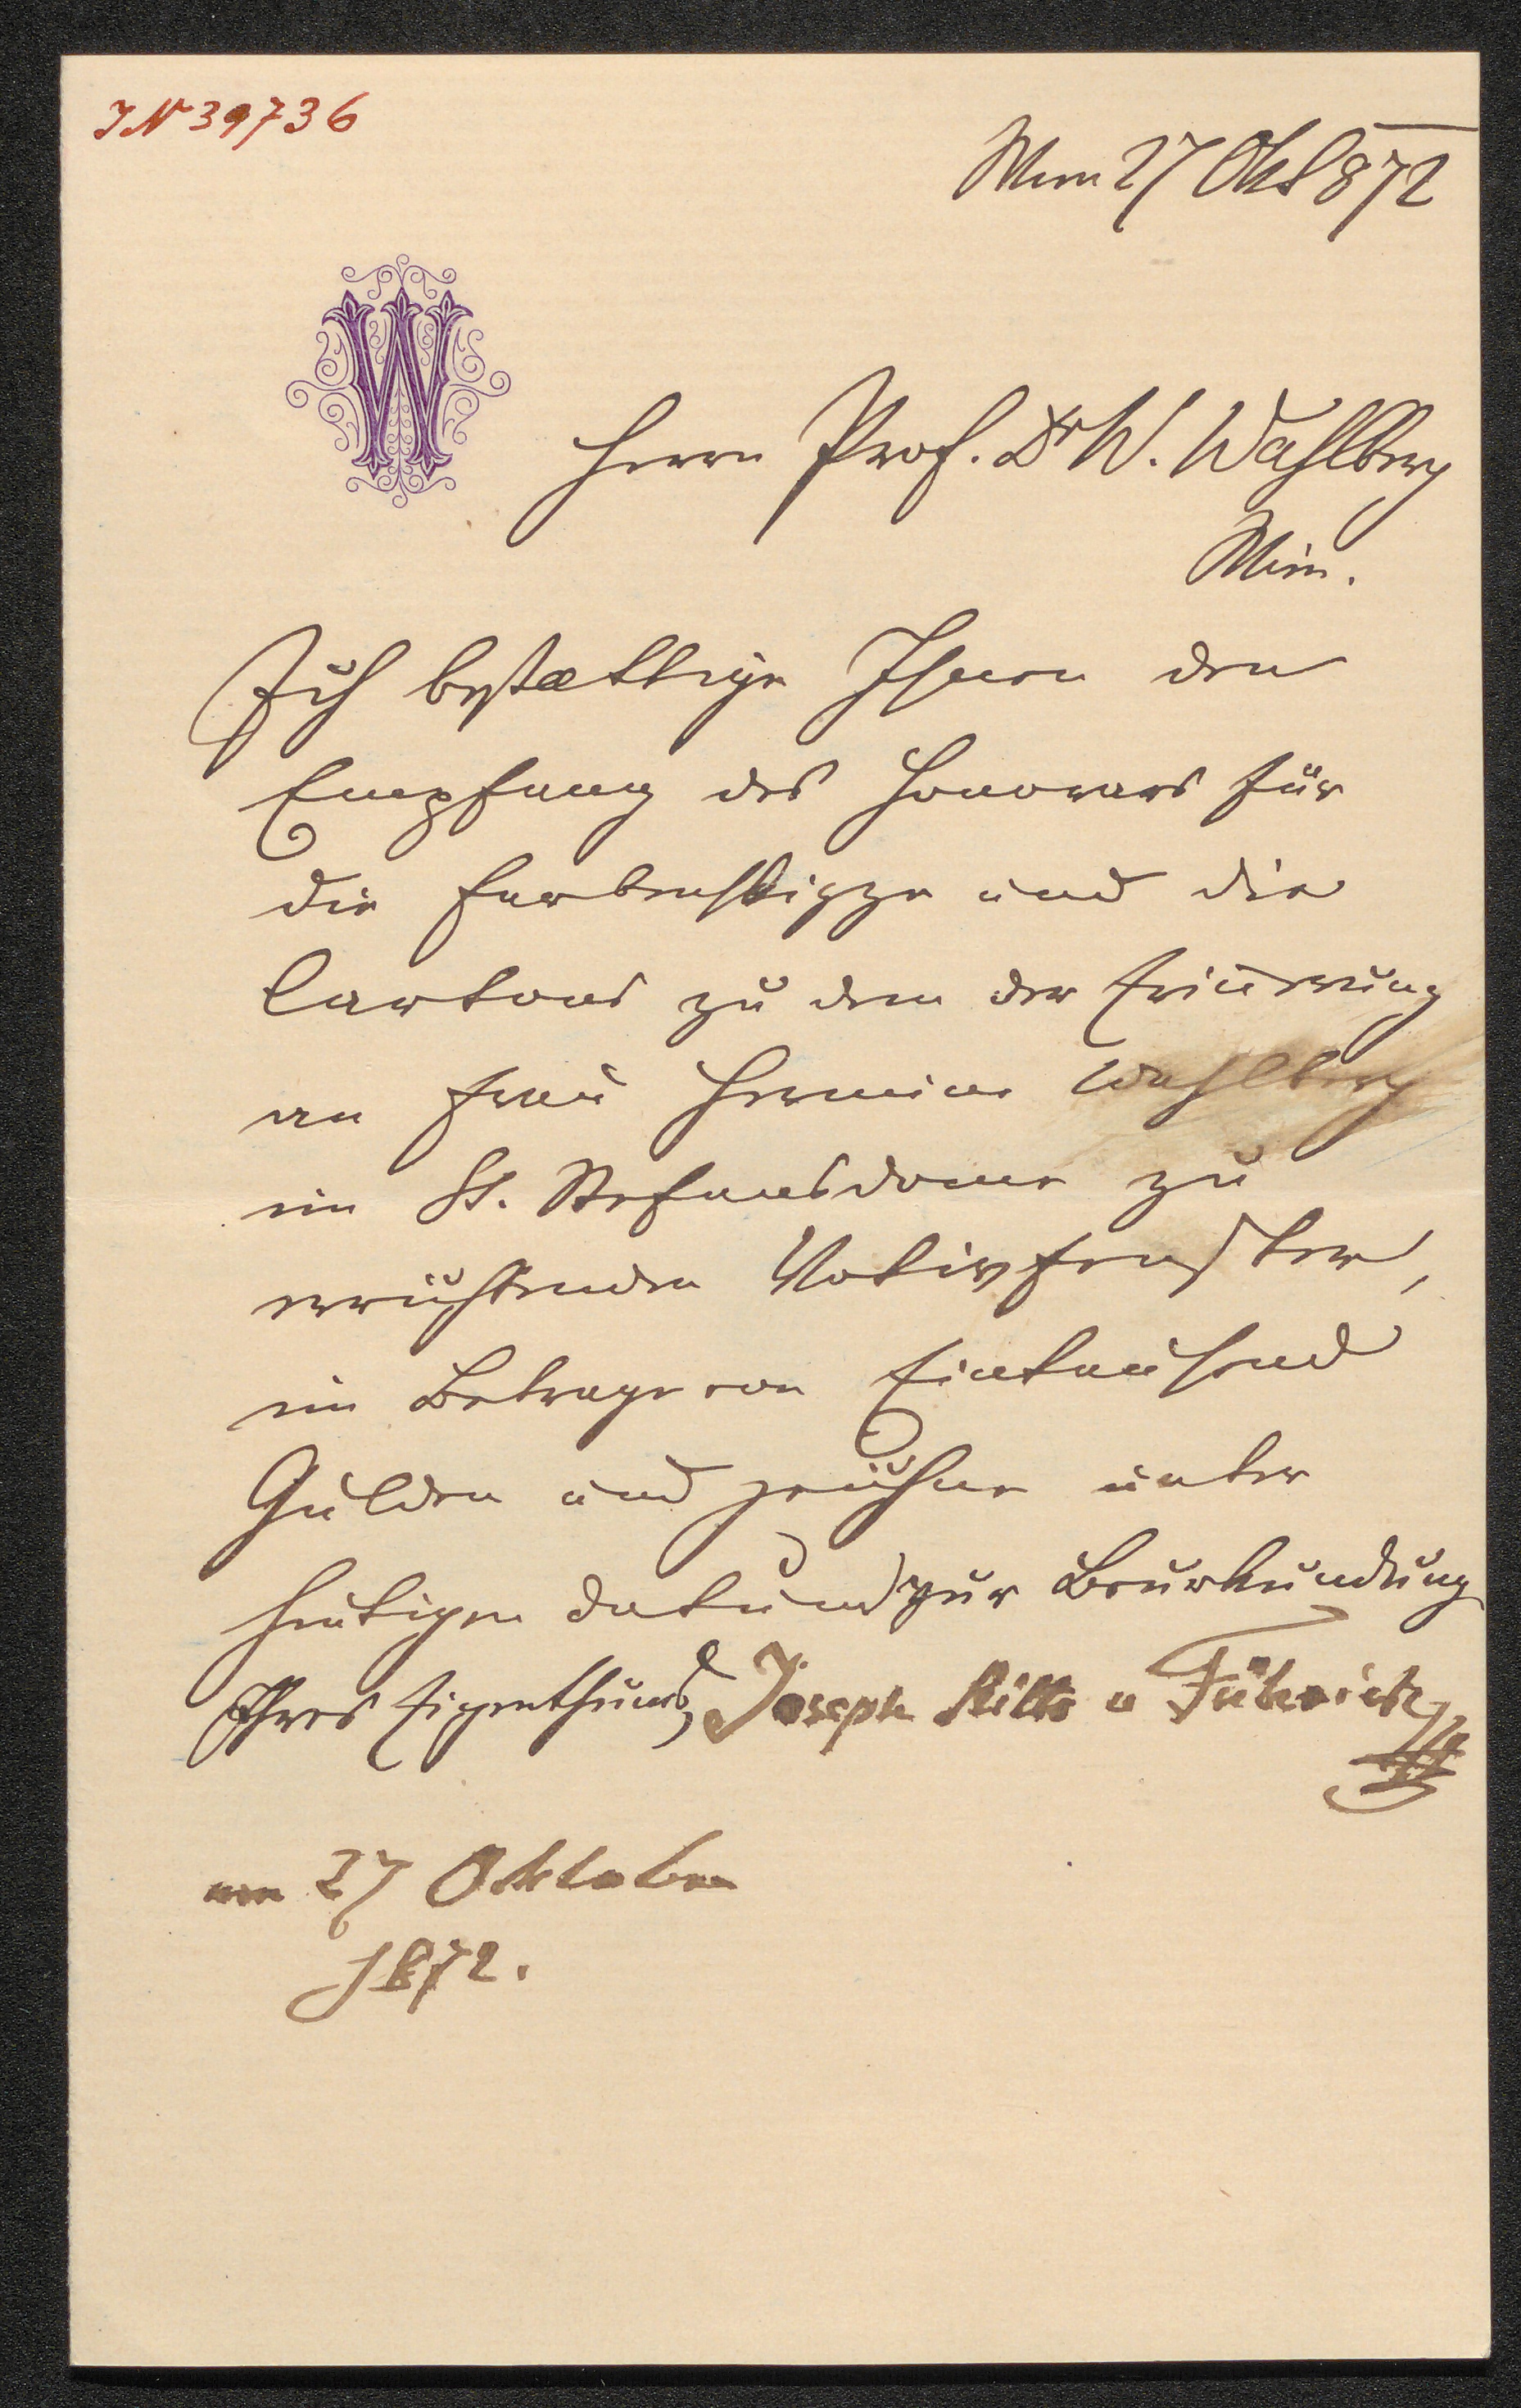 IN 39736
Wien 27 Okt 872
W
Herrn Prof. Dr W. Wahlberg
Wien.
Ich bestaettige Ihnen den
Empfang des Honorars für
die Farbenskizze und die
Cartons zu dem der Erinerung
an Frau Hermine Wahlberg
im St. Stefansdome zu
errichtenden Votivfenster,
im Betrage von Eintausend
Gulden und zeichne unter
heutigen datum zur Beurkundung
Ihres Eigenthums, Joseph Ritter v Führich
am 27 Oktober
1872.